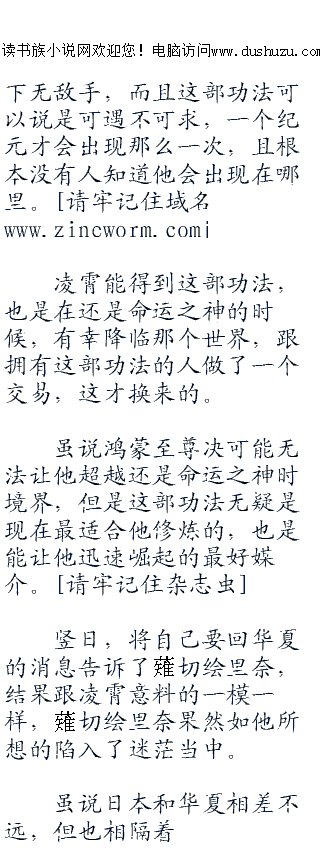 读书族小说网欢迎您！电脑访问www.dushuzu.com
下无敌手，而且这部功法可
以说是可遇不可求，一个纪
元才会出现那么一次，且根
本没有人知道他会出现在哪
里。[请牢记住域名
www.zincworm.com]
凌霄能得到这部功法，
也是在还是命运之神的时
候，有幸降临那个世界，跟
拥有这部功法的人做了一个
交易，这才换来的。
虽说鸿蒙至尊决可能无
法让他超越还是命运之神时
境界，但是这部功法无疑是
现在最适合他修炼的，也是
能让他迅速崛起的最好媒
介。[请牢记住杂志虫]
竖日，将自己要回华夏
的消息告诉了薙切绘里奈，
结果跟凌霄意料的一模一
样，薙切绘里奈果然如他所
想的陷入了迷茫当中。
虽说日本和华夏相差不
远，但也相隔着